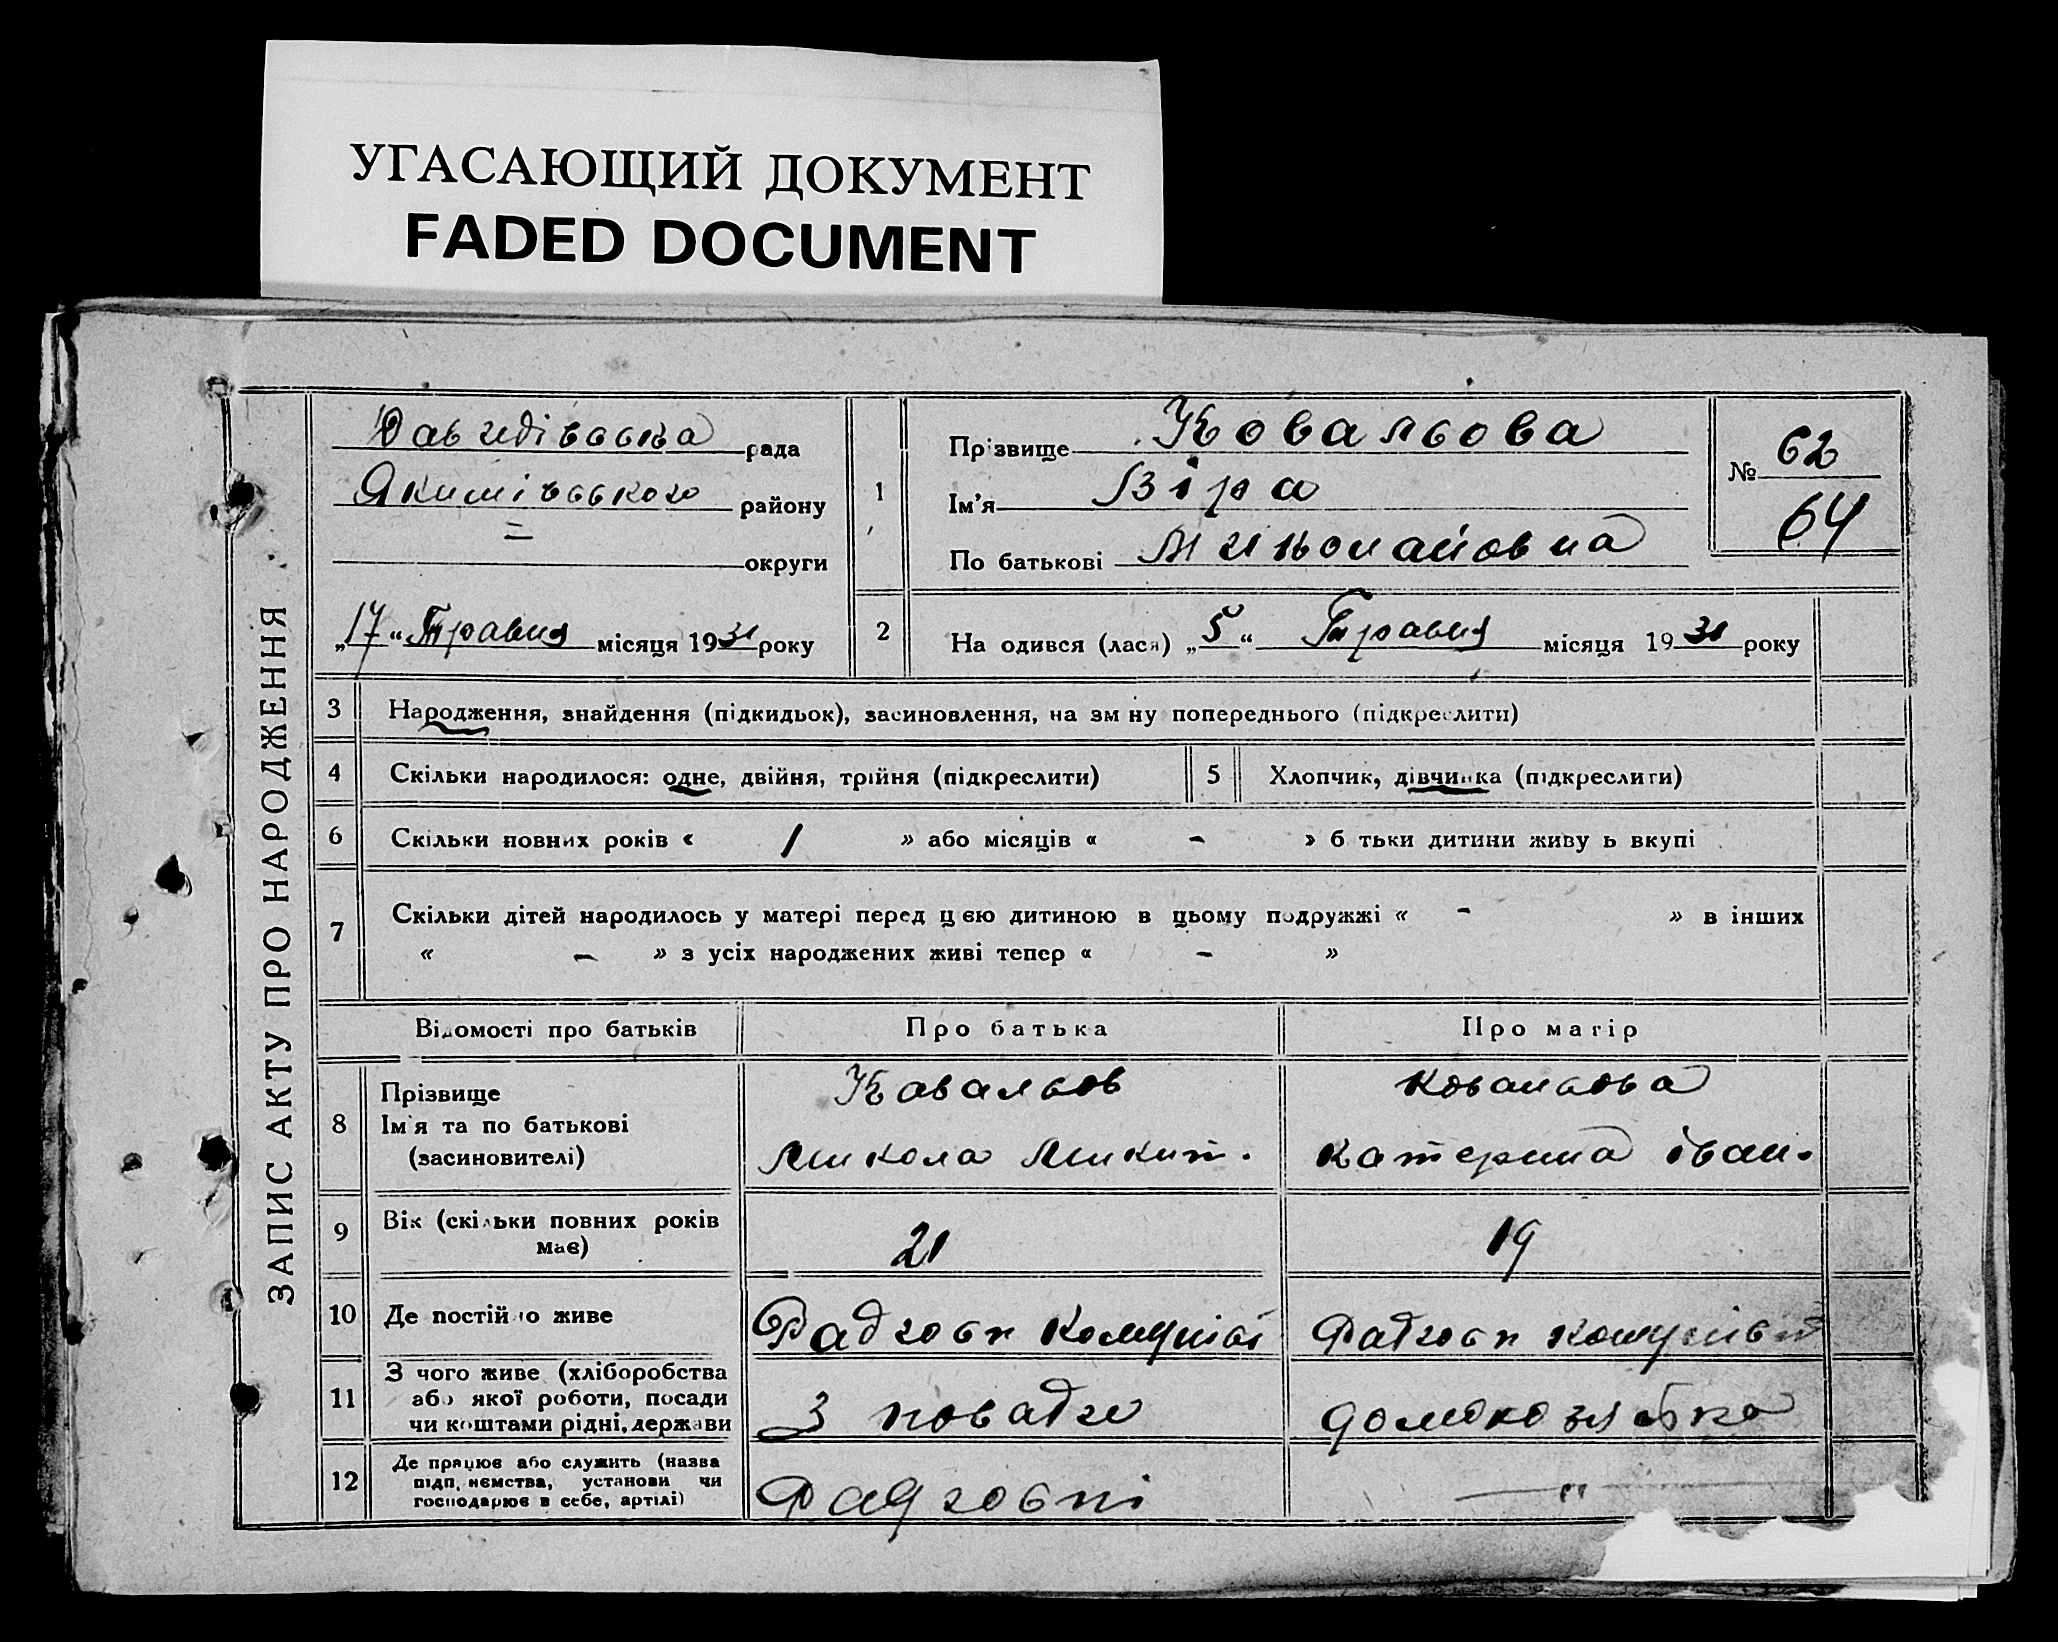 УГАСАЮЩИЙ ДОКУМЕНТ
FADED DOCUMENT
ЗАПИС АКТУ ПРО НАРОДЖЕННЯ
рада
Якимівського району
округи
„17“ Травня місяця 1931 року
1
Прізвище Ковальова
Ім'я Віра
По батькові Миколайовна
№ 62
64
2 На одився (лася) „5“ Травня місяця 1931 року
3 Народження, знайдення (підкидьок), засиновлення, на зм ну попереднього (підкреслити)
4 Скільки народилося: одне, двійня, трійня (підкреслити)
5 Хлопчик, дівчинка (підкреслити)
6 Скільки повних років « 1 » або місяців « - » б тьки дитини живу ь вкупі
7 Скільки дітей народилось у матері перед цією дитиною в цьому подружжі « - » в інших
« - » з усіх народжених живі тепер « - »
Відомості про батьків Про батька Про матір
8 Прізвище
Ім'я та по батькові
(засиновителі)
Ковальов
Микола Микит.
Ковальова
Катерина Іван.
9 Вік (скільки повних років
має)
21 19
10 Де постійно живе
Радгосп Радгосп
11 З чого живе (хліборобства
або якої роботи, посади
чи коштами рідні, держави
З домохозяйка
12 Де працює або служить (назва
підп иємства, установи чи
господарює в себе, артілі)
Радгоспі - " -